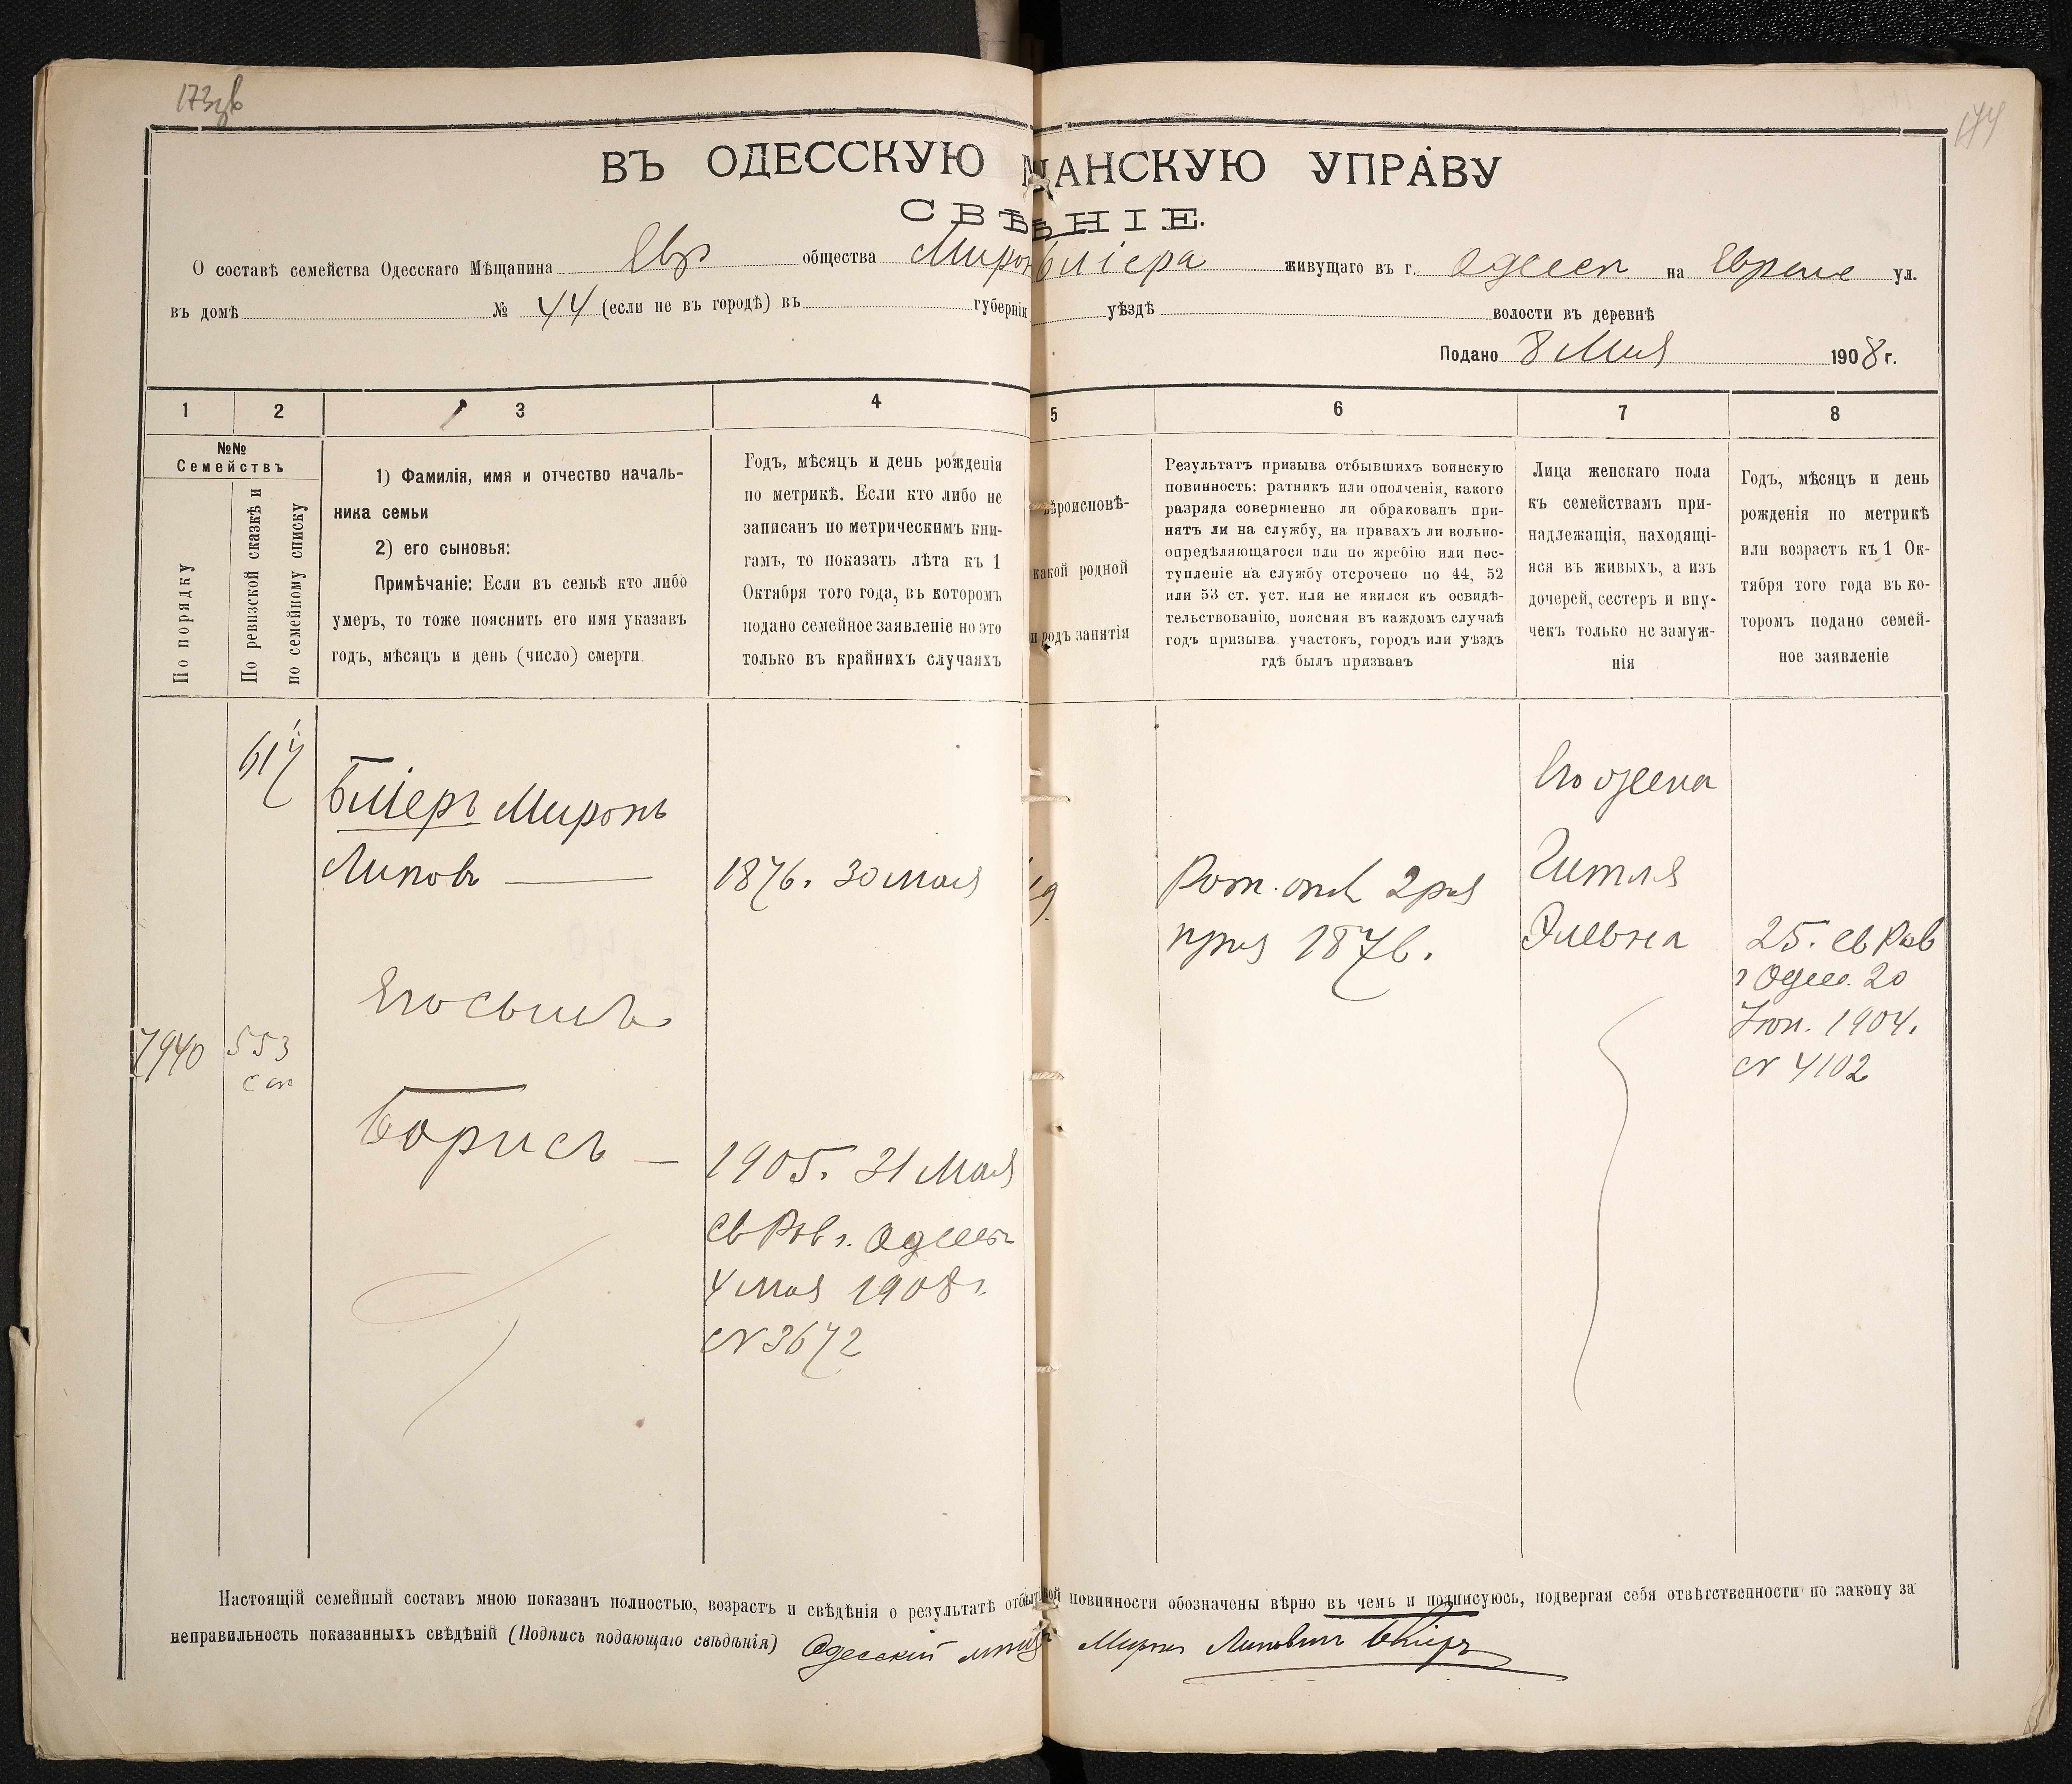 173
ВЪ ОДЕССКУЮ МѢЩАНСКУЮ УПРАВУ
СВѢДѢНІЕ.
О составѣ семейства Одесскаго Мѣщанина Евр общества Мирон Бліера живущаго въ г. Одессѣ на ул.
въ домѣ № 44 (если не въ городѣ) въ губерніи уѣздѣ волости въ деревнѣ
Подано 8 Мая 1908 г.
1 2 3 4 5 6 7 8
№№ Семействъ
По порядку
По ревизской сказкѣ и по семейному списку
1) Фамилія, имя и отчество началь-
ника семьи
2) его сыновья:
Примѣчаніе: Если въ семьѣ кто либо
умеръ, то тоже пояснить его имя указавъ
годъ, мѣсяцъ и день (число) смерти.
Годъ, мѣсяцъ и день рожденія
по метрикѣ. Если кто либо не
записанъ по метрическимъ кни-
гамъ, то показать лѣта къ 1
Октября того года, въ которомъ
подано семейное заявленіе но это
только въ крайнихъ случаяхъ
вѣроисповѣ-
какой родной
и родъ занятія
Результатъ призыва отбывшихъ воинскую
повинность: ратникъ или ополченія, какого
разряда совершенно ли обракованъ при-
нятъ ли на службу, на правахъ ли вольно-
опредѣляющагося или по жребію или пос-
тупленіе на службу отсрочено по 44, 52
или 53 ст. уст. или не явился къ освидѣ-
тельствованію, поясняя въ каждомъ случаѣ
годъ призыва. участокъ, городъ или уѣздъ
гдѣ былъ призванъ
Лица женскаго пола
къ семействамъ при-
надлежащія, находящі-
яся въ живыхъ, а изъ
дочерей, сестеръ и вну-
чекъ только незамуж-
нія
Годъ, мѣсяцъ и день
рожденія по метрикѣ
или возрастъ къ 1 Ок-
тября того года въ ко-
торомъ подано семей-
ное заявленіе
617
Бліеръ Миронъ
Липовъ — 1876. 30 мая
Рат. опол 2 раз
приз 1876.
Его жена
Гитля
Элевна
25. св Рав
г Одес. 20
Іюн. 1904.
№ 4102
Его сынъ
7940 553
Борисъ — 1905. 31 Мая
св Рав г. Одессы
4 мая 1908 г.
№ 3672
Настоящій семейный составъ мною показанъ полностью, возрастъ и свѣдѣнія о результатѣ отбытія повинности обозначены вѣрно въ чемъ и подписуюсь, подвергая себя отвѣтственности по закону за
неправильность показанныхъ свѣдѣній (Подпись подающаго свѣдѣнія) Одесскій Миронъ Липовичъ Бліеръ